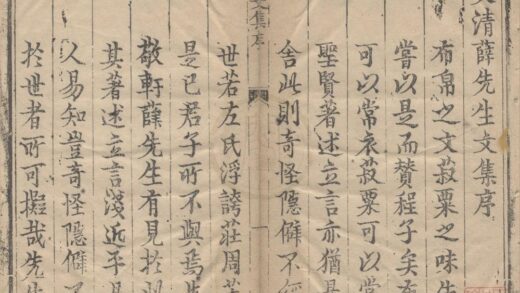 清薛先生文集序
布帛之文菽粟之味
嘗以是而贊程子矣
可以常衣菽粟可以常
聖賢著述立言亦猶是
舍此則奇怪隱僻不經
集序
一
世若左氏浮誇莊周
是已君子所不與焉
敬軒薛先生有見於
其著述立言淺近平
人易知豈奇怪隱僻不
於世者所可擬哉先生